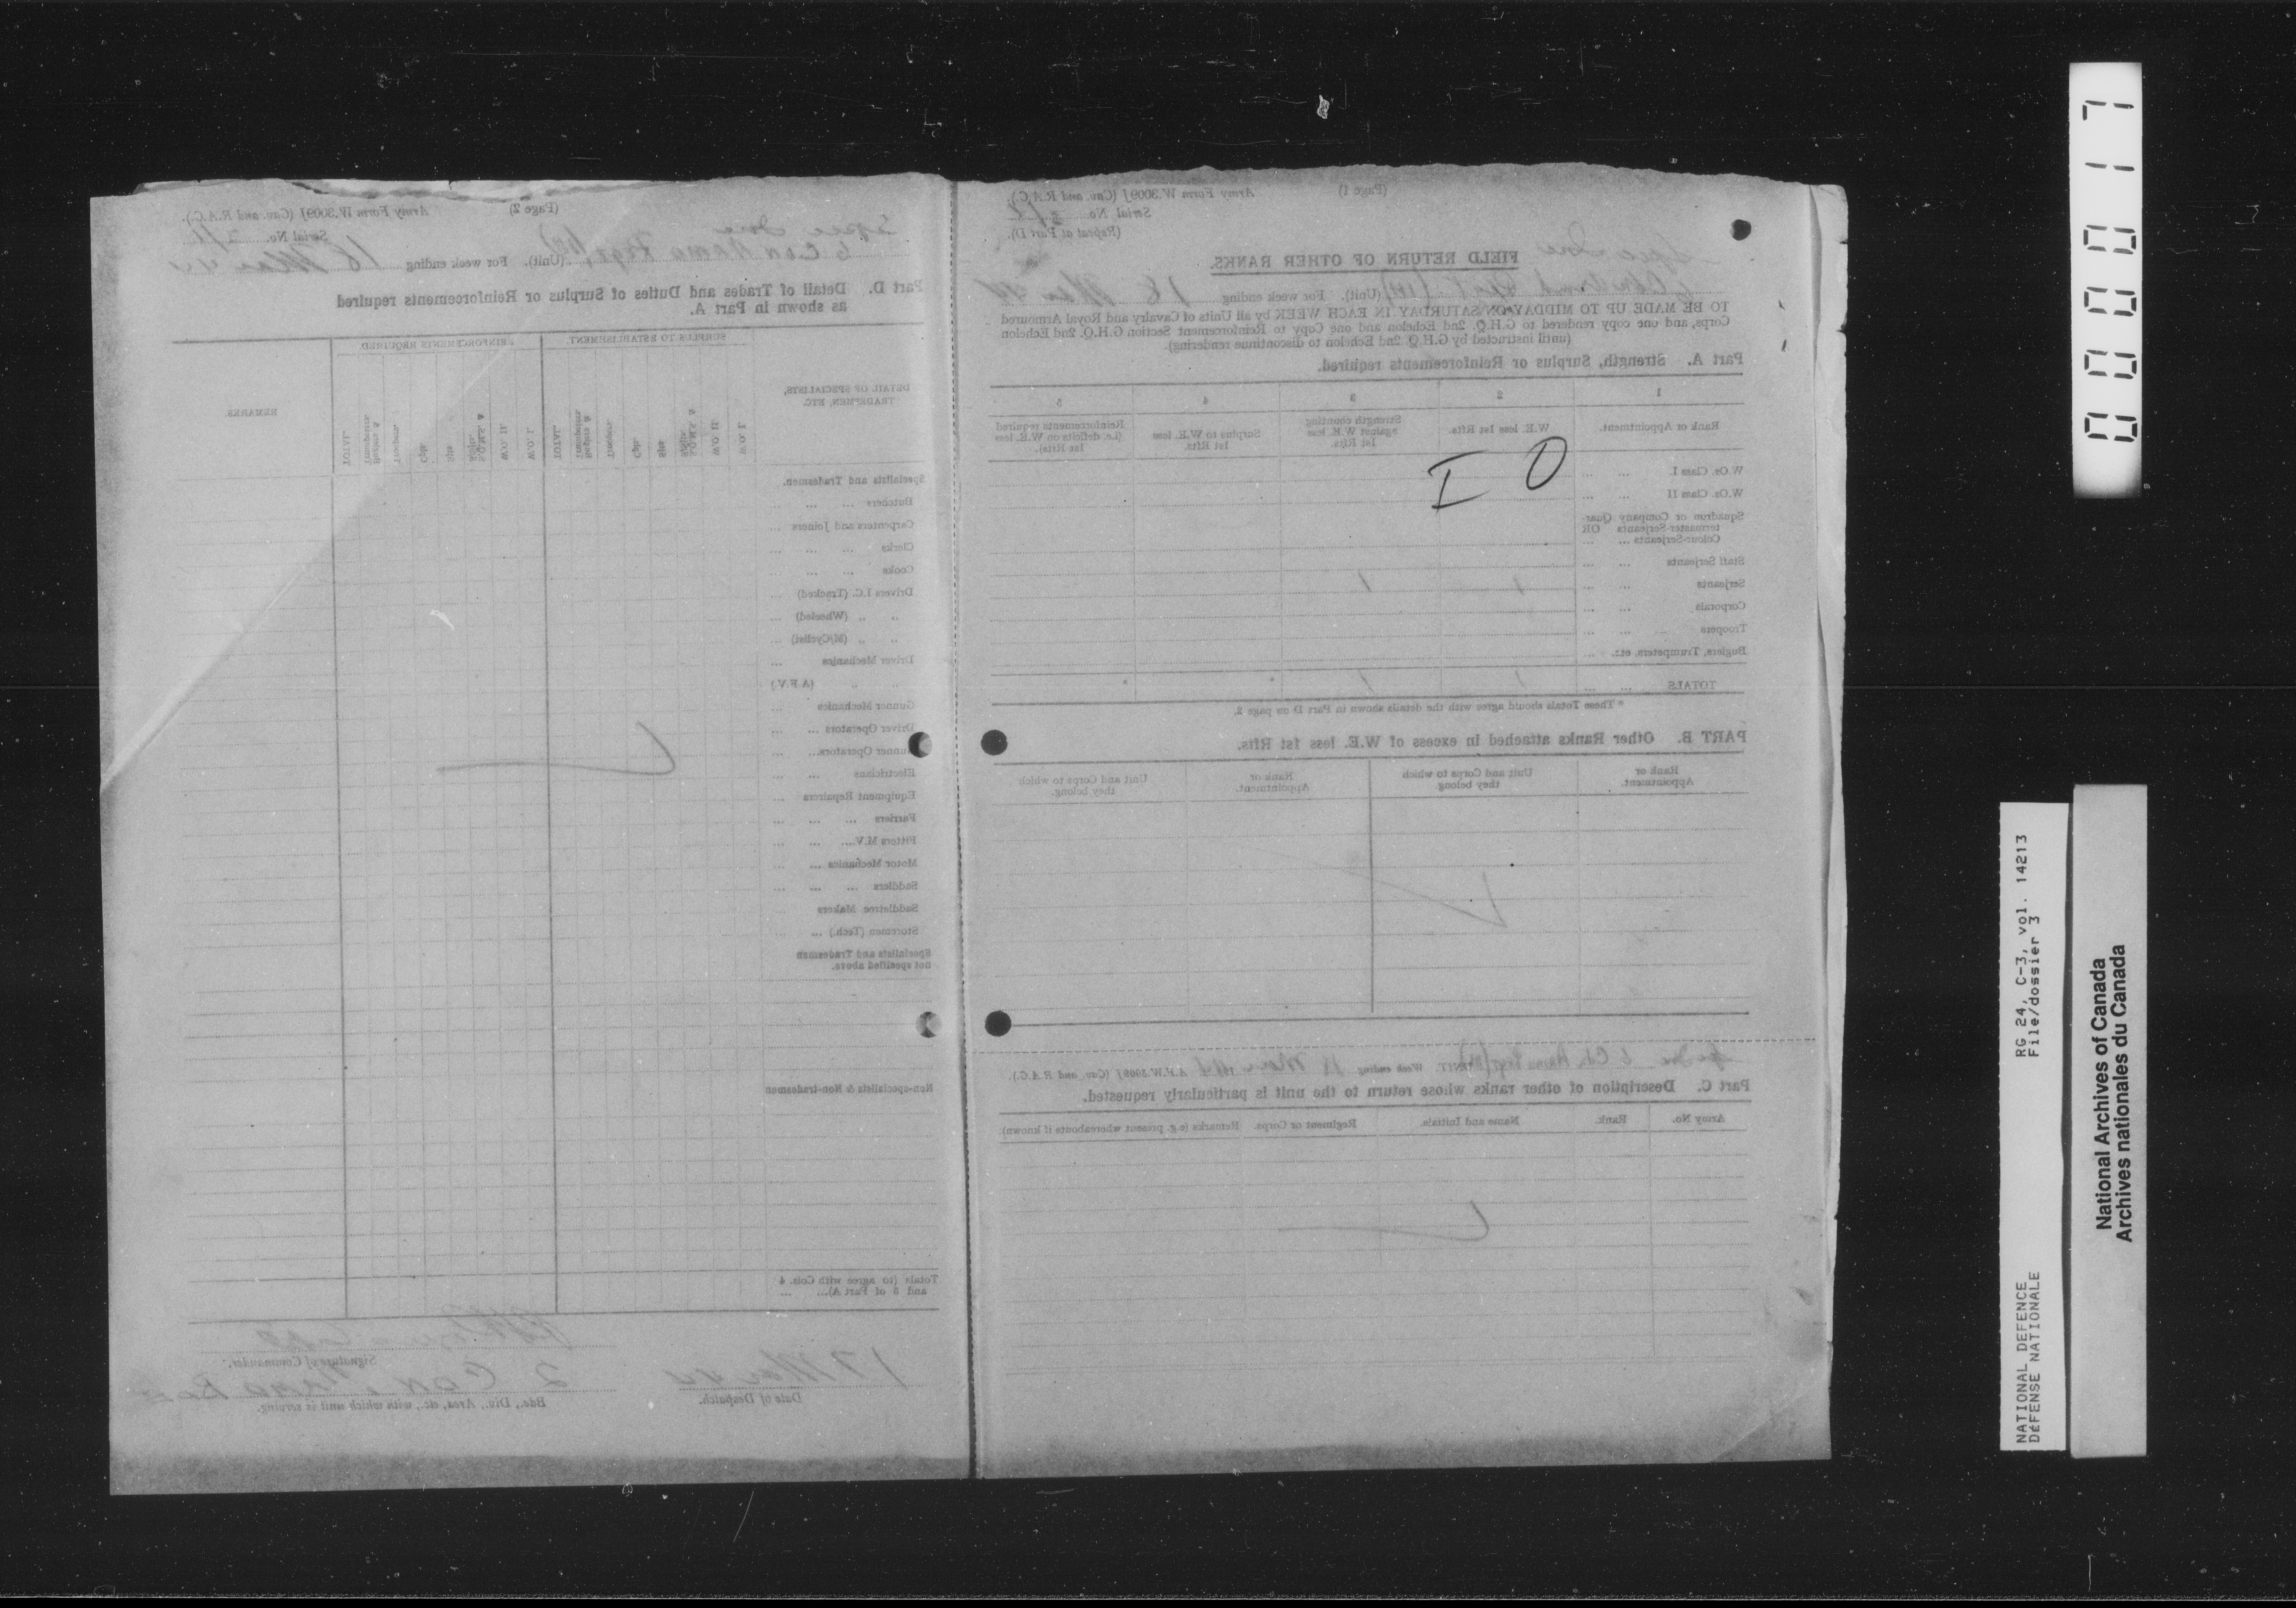 (Page 1) Army Form W.3009J (Cav. and R.A.C.).
Serial No.
(Repeat at Part D).
FIELD RETURN OF OTHER RANKS.
(Unit). For week ending 18 Mar 44
TO BE MADE UP TO MIDDAY ON SATURDAY IN EACH WEEK by all Units of Cavalry and Royal Armoured
Corps, and one copy rendered to G.H.Q. 2nd Echelon and one Copy to Reinforcement Section G.H.Q. 2nd Echelon
(until instructed by G.H.Q. 2nd Echelon to discontinue rendering).
Part A. Strength, Surplus or Reinforcements required.
1 2 3 4 5
Rank or Appointment.
W.E. less 1st Rfts.
Strength counting
against W.E. less
1st Rfts.
Surplus to W.E. less
1st Rfts.
Reinforcements required
(i.e. deficits on W.E. less
1st Rfts).
I O
W.Os. Class I. ... ...
W.Os. Class II ... ...
Squadron or Company Quar-
termaster-Serjeants OR
Colour-Serjeants ... ...
Staff Serjeants ... ...
Serjeants ... ... 1 1
Corporals ... ...
Troopers ... ...
Buglers, Trumpeters, etc. ...
TOTALS ... ... 1 1 * *
* These Totals should agree with the details shown in Part D on page 2.
PART B. Other Ranks attached in excess of W.E. less 1st Rfts.
Rank or
Appointment.
Unit and Corps to which
they belong.
Rank or
Appointment.
Unit and Corps to which
they belong.
UNIT Week ending 18 Mar 44 A.F.W.3009J (Cav. and R.A.C.).
Part C. Description of other ranks whose return to the unit is particularly requested.
Army No. Rank. Name and Initials. Regiment or Corps. Remarks (e.g. present whereabouts if known)
(Page 2) Army Form W.3009J (Cav. and R.A.C.).
Serial No.
6 Cdn Armd Regt (Unit). For week ending 18 Mar 44
Part D. Detail of Trades and Duties of Surplus or Reinforcements required
as shown in Part A.
DETAIL OF SPECIALISTS,
TRADESMEN, ETC.
SURPLUS TO ESTABLISHMENT.
REINFORCEMENTS REQUIRED.
REMARKS.
W.O. I.
W.O. II.
S.Q.M.S. &
S/Sjts.
Sjts
Cpls.
Troopers.
Buglers &
Trumpeters
TOTAL.
W.O. I.
W.O. II.
S.Q.M.S. &
S/Sjts.
Sjts
Cpls.
Troopers.
Buglers &
Trumpeters
TOTAL.
Specialists and Tradesmen.
Butchers ... ... ...
Carpenters and Joiners ...
Clerks ... ... ...
Cooks ... ... ...
Drivers I.C. (Tracked) ...
" " (Wheeled) ...
" " (M/Cyclist) ...
Driver Mechanics ...
" " (A.F.V.)
Gunner Mechanics ...
Driver Operators ... ...
Gunner Operators... ...
Electricians ... ...
Equipment Repairers ...
Farriers ... ... ...
Fitters M.V. ... ... ...
Motor Mechanics ... ...
Saddlers ... ... ...
Saddletree Makers ...
Storemen (Tech.) ... ...
Specialists and Tradesmen
not specified above.
Non-specialists & Non-tradesmen
Totals (to agree with Cols. 4
and 5 of Part A)... ...
Signature of Commander.
17 Mar 44
Date of Despatch.
2 Cdn Armd Bde
Bde., Div., Area, etc., with which unit is serving.
0000117
RG 24, C-3, vol. 14213
File/dossier 3
NATIONAL DEFENCE
DÉFENSE NATIONALE
National Archives of Canada
Archives nationales du Canada